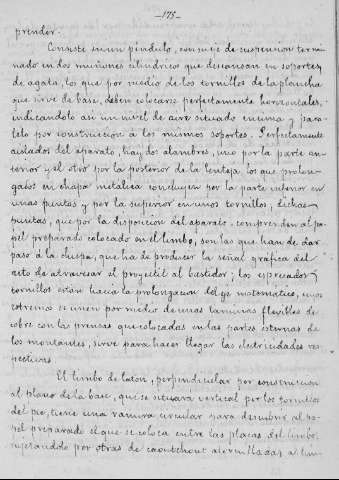 -175-
prender.
Consiste en un péndulo, con su eje de suspension termi
nado en dos muñones cilindricos que descansan en soportes
de agata, los que por medio de los tornillos de la plancha
que sirve de base, deben colocarse perfectamente horizontales,
indicandolo asi un nivel de aire situado encima y para-
lelo por construcción a los mismos soportes. Perfectamente
aislados del aparato, hay dos alambres, uno por la parte an-
terior y el otro por la posterior de la lenteja, los que prolon-
gados en chapa metalica concluyen por la parte inferior en
unas puntas y por la superior en unos tornillos; dichas
puntas, que por la disposicion del aparato, comprenden al pa-
pel preparado colocado en el limbo, son las que han de dar
paso á la chispa, que ha de producir la señal gráfica del
acto de atravesar el proyectil al bastidor; los expresados
tornillos están hacia la prolongacion del eje matemático, cuyos
extremos se unen por medio de unas laminas flexibles de
cobre con las prensas que colocadas en las partes externas de
los montantes, sirve para hacer llegar las electricidades res-
pectivas.
El limbo de laton, perpendicular por construccion
al plano de la base, que se situará vertical por los tornillos
del pie, tiene una ranura circular para descubrir al pa-
pel preparado el que se coloca entre las placas del limbo,
sujetandolo por otras de caoutchout atornilladas a lim-